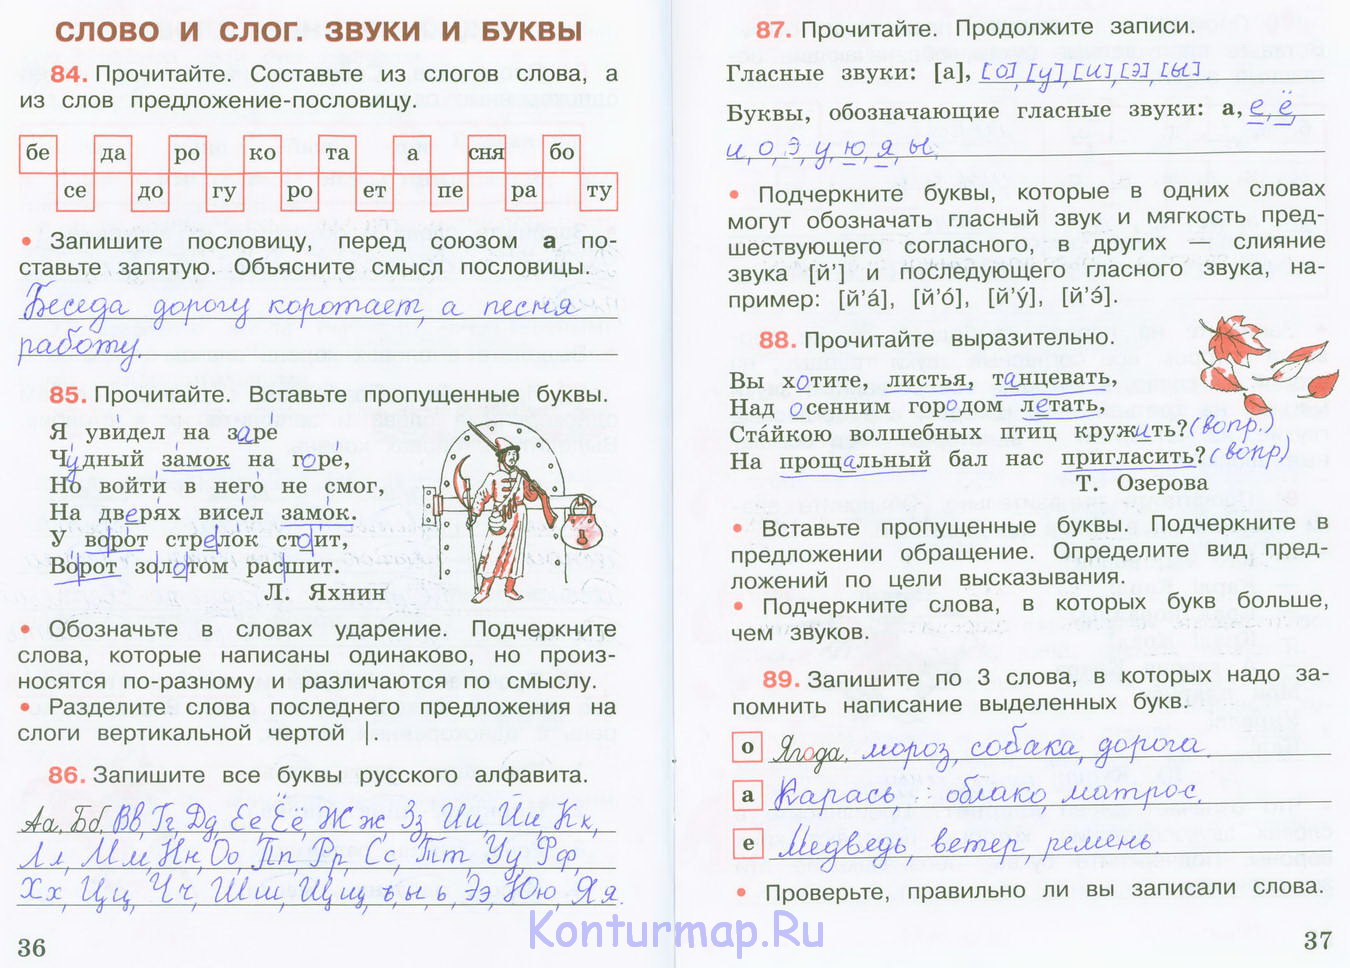 СЛОВО И СЛОГ. ЗВУКИ И БУКВЫ
84. Прочитайте. Составьте из слогов слова, а
из слов предложение-пословицу.
бе да ро ко та а сня бо
се до гу ро ет пе ра ту
• Запишите пословицу, перед союзом а по-
ставьте запятую. Объясните смысл пословицы.
Беседа дорогу коротает, а песня
работу.
85. Прочитайте. Вставьте пропущенные буквы.
Я увидел на заре
Чудный замок на горе,
Но войти в него не смог,
На дверях висел замок.
У ворот стрелок стоит,
Ворот золотом расшит.
Л. Яхнин
• Обозначьте в словах ударение. Подчеркните
слова, которые написаны одинаково, но произ-
носятся по-разному и различаются по смыслу.
• Разделите слова последнего предложения на
слоги вертикальной чертой |.
86. Запишите все буквы русского алфавита.
Аа, Бб, Вв, Гг, Дд, Ее, Ёё, Жж, Зз, Ии, Йй, Кк,
Лл, Мм, Нн, Оо, Пп, Рр, Сс, Тт, Уу, Фф,
Хх, Цц, Чч, Шш, Щщ, ъ, ы, ь, Ээ, Юю, Яя.
36
87. Прочитайте. Продолжите записи.
Гласные звуки: [а], [о], [у], [и], [э], [ы].
Буквы, обозначающие гласные звуки: а, е, ё,
и, о, э, у, ю, я, ы.
• Подчеркните буквы, которые в одних словах
могут обозначать гласный звук и мягкость пред-
шествующего согласного, в других — слияние
звука [й’] и последующего гласного звука, на-
пример: [й’а́], [й’о́], [й’у́], [й’э́].
88. Прочитайте выразительно.
Вы хотите, листья, танцевать,
Над осенним городом летать,
Ста́йкою волшебных птиц кружить? (вопр.)
На прощальный бал нас пригласить? (вопр)
Т. Озерова
• Вставьте пропущенные буквы. Подчеркните в
предложении обращение. Определите вид пред-
ложений по цели высказывания.
• Подчеркните слова, в которых букв больше,
чем звуков.
89. Запишите по 3 слова, в которых надо за-
помнить написание выделенных букв.
о Ягода, мороз, собака, дорога.
а Карась, облако, матрос.
е Медведь, ветер, ремень.
• Проверьте, правильно ли вы записали слова.
37
Konturmap.Ru